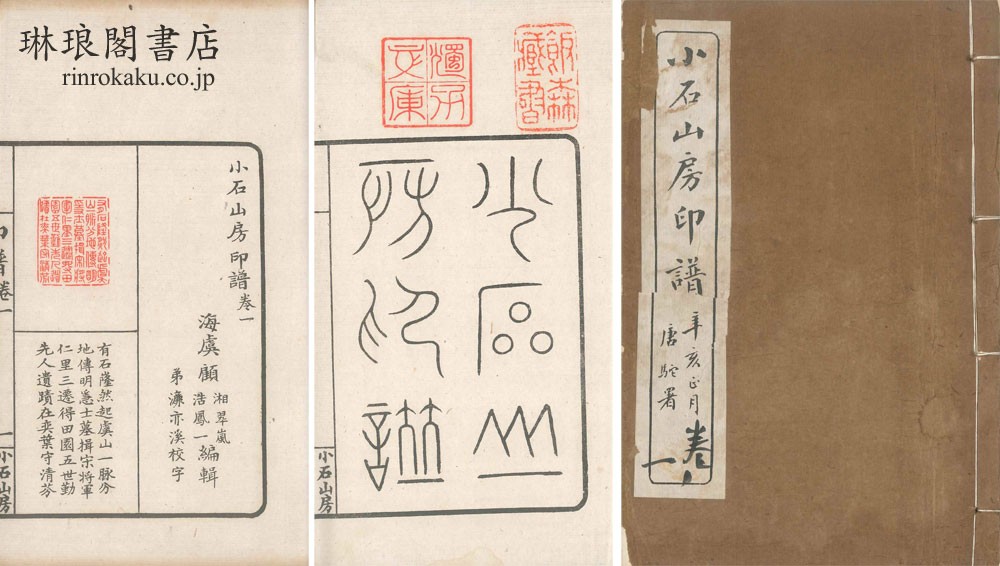 琳琅閣書店
rinrokaku.co.jp
小石山房印譜卷一
海虞顧
湘翠嵐
浩鳳一
編輯
弟濂亦溪校字
有石隆然起虞山一脉分
地傳明惠士墓揖宋將軍
仁里三遷得田園五世勤
先人遺蹟在奕葉守清芬
印譜卷一
一
小石山房
小石山
房印譜
小石山房
飯森
藏書
小石山房印譜
辛亥正月
唐駝署
卷一